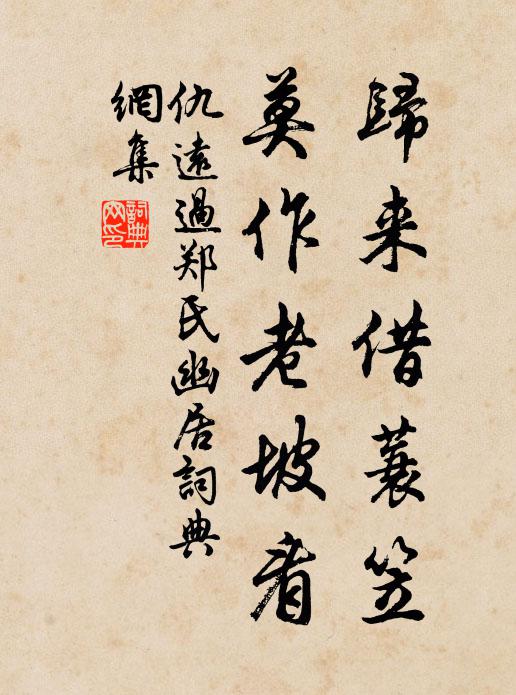 歸来借蓑笠
莫作老坡看
仇遠過郑氏幽居詞典
網集
詞典
网印